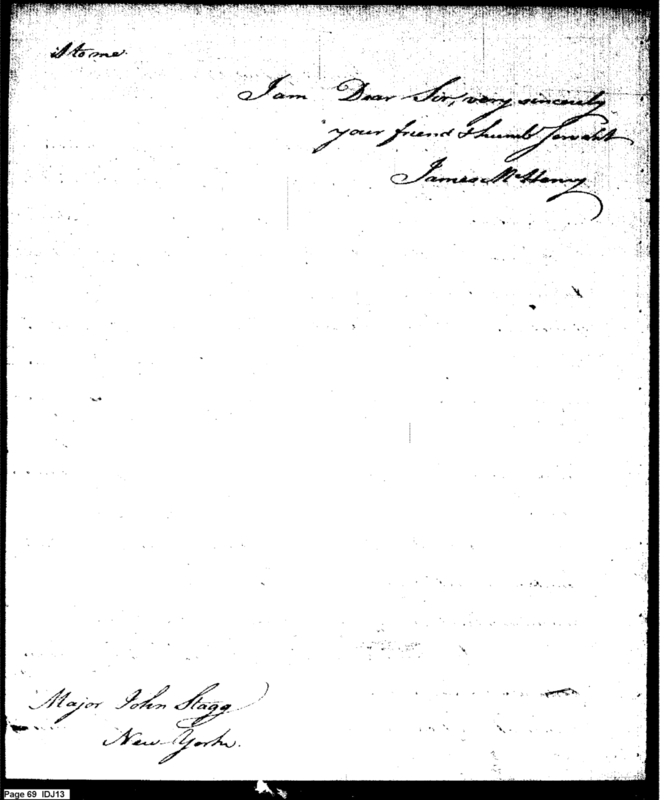 it to me.
I am Dear Sir, very sincerely
your friend & humb Servant
James McHenry
Major John Stagg
New York.
Page 69 IDJ13